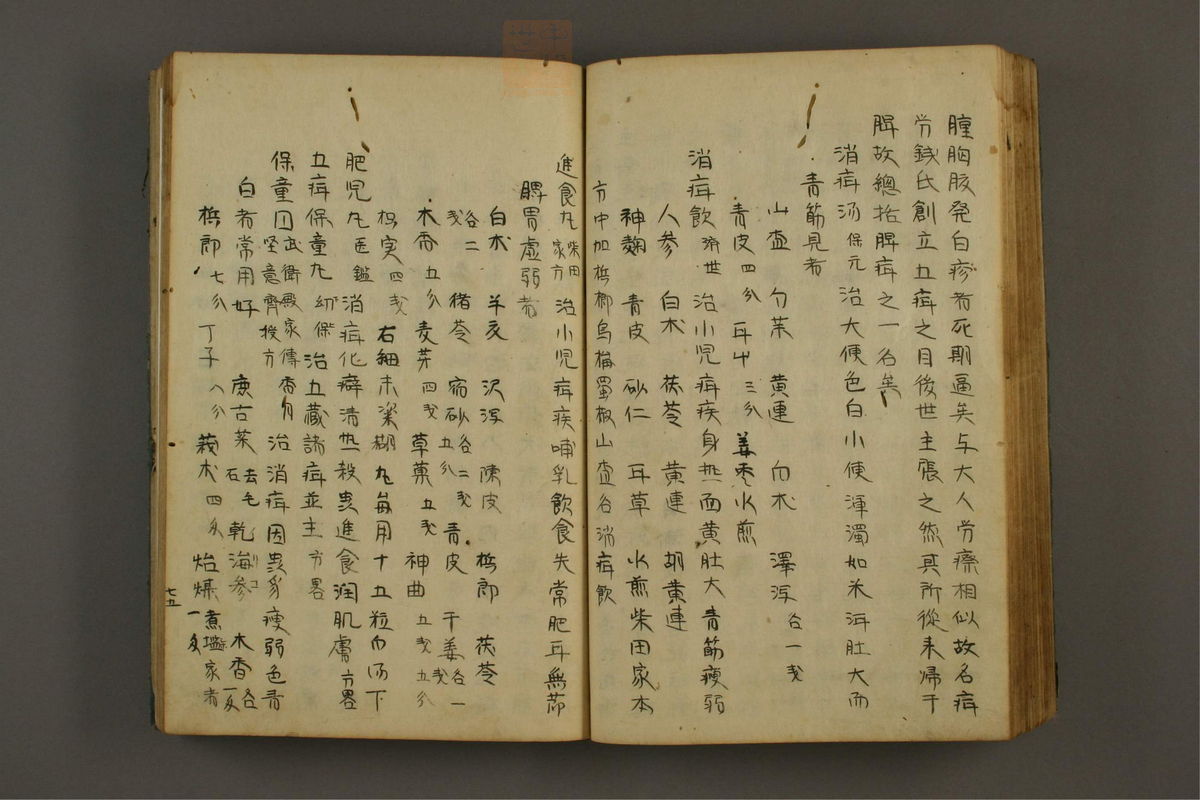 腫胸腋発白疹者死期逼矣与大人労瘵相似故名疳
労錢氏創立五疳之目後世主張之然其所從来帰于
脾故總括脾疳之一名矣
消疳汤 保元 治大便色白小便渾濁如米泔肚大而
青筋見者
山査 勺茱 黄連 白术 澤泻 各一戔
青皮四分 耳屮三分 姜枣水煎
消疳飲 済世 治小児疳疾身热面黄肚大青筋瘦弱
人参 白术 茯苓 黄連 胡黄連
神麹 青皮 砂仁 耳草 水煎柴田家本
方中加梹榔烏梅蜀椒山査名消疳飲
進食丸 柴田家方 治小児疳疾哺乳飲食失常肥耳無節
脾胃虚弱者
白术 半夏 沢泻 陳皮 梹郎 茯苓
各二戔 猪苓 宿砂 各二戔五分 青皮 干姜 各一戔
木香 五分 麦芽 四戔 草菓 五戔 神曲 五戔五分
枳实 四戔 右細末梁糊丸每用十五粒白汤下
肥児丸 医鑑 消疳化癖清热殺虫進食润肌膚 方畧
五疳保童丸 幼保 治五藏諸疳並主 方畧
保童円 武衛殿家傳香月坚意齊授方 治消疳因虫豸瘦弱色青
白者常用好 鹿古菜 去毛石 乾海参 木香 各一戔
梹郎 七分 丁子 八分 莪术 四分 煮塩家者
七五